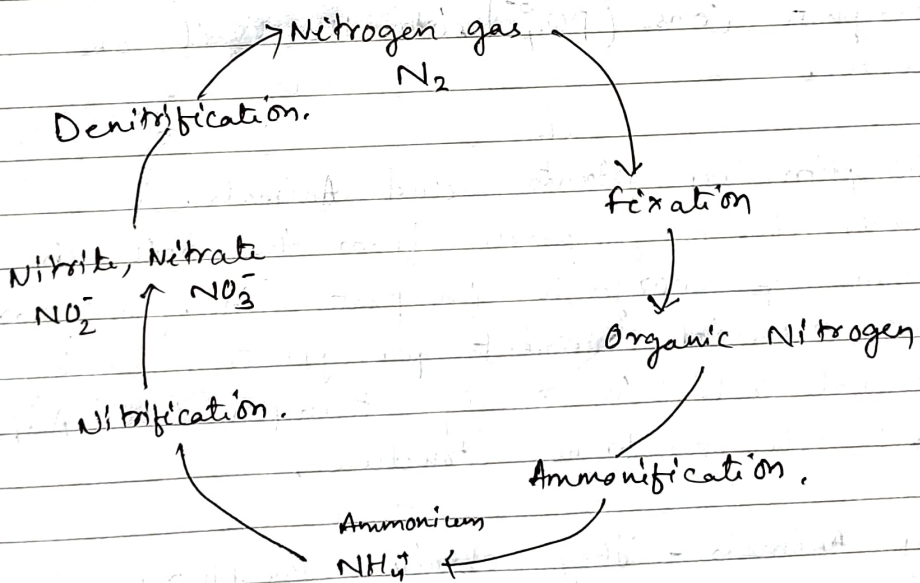 Nitrogen gas
N₂
Denitrification.
fixation
Nitrite, Nitrate
NO₂⁻ NO₃⁻
Organic Nitrogen
Nitrification.
Ammonification.
Ammonium
NH₄⁺